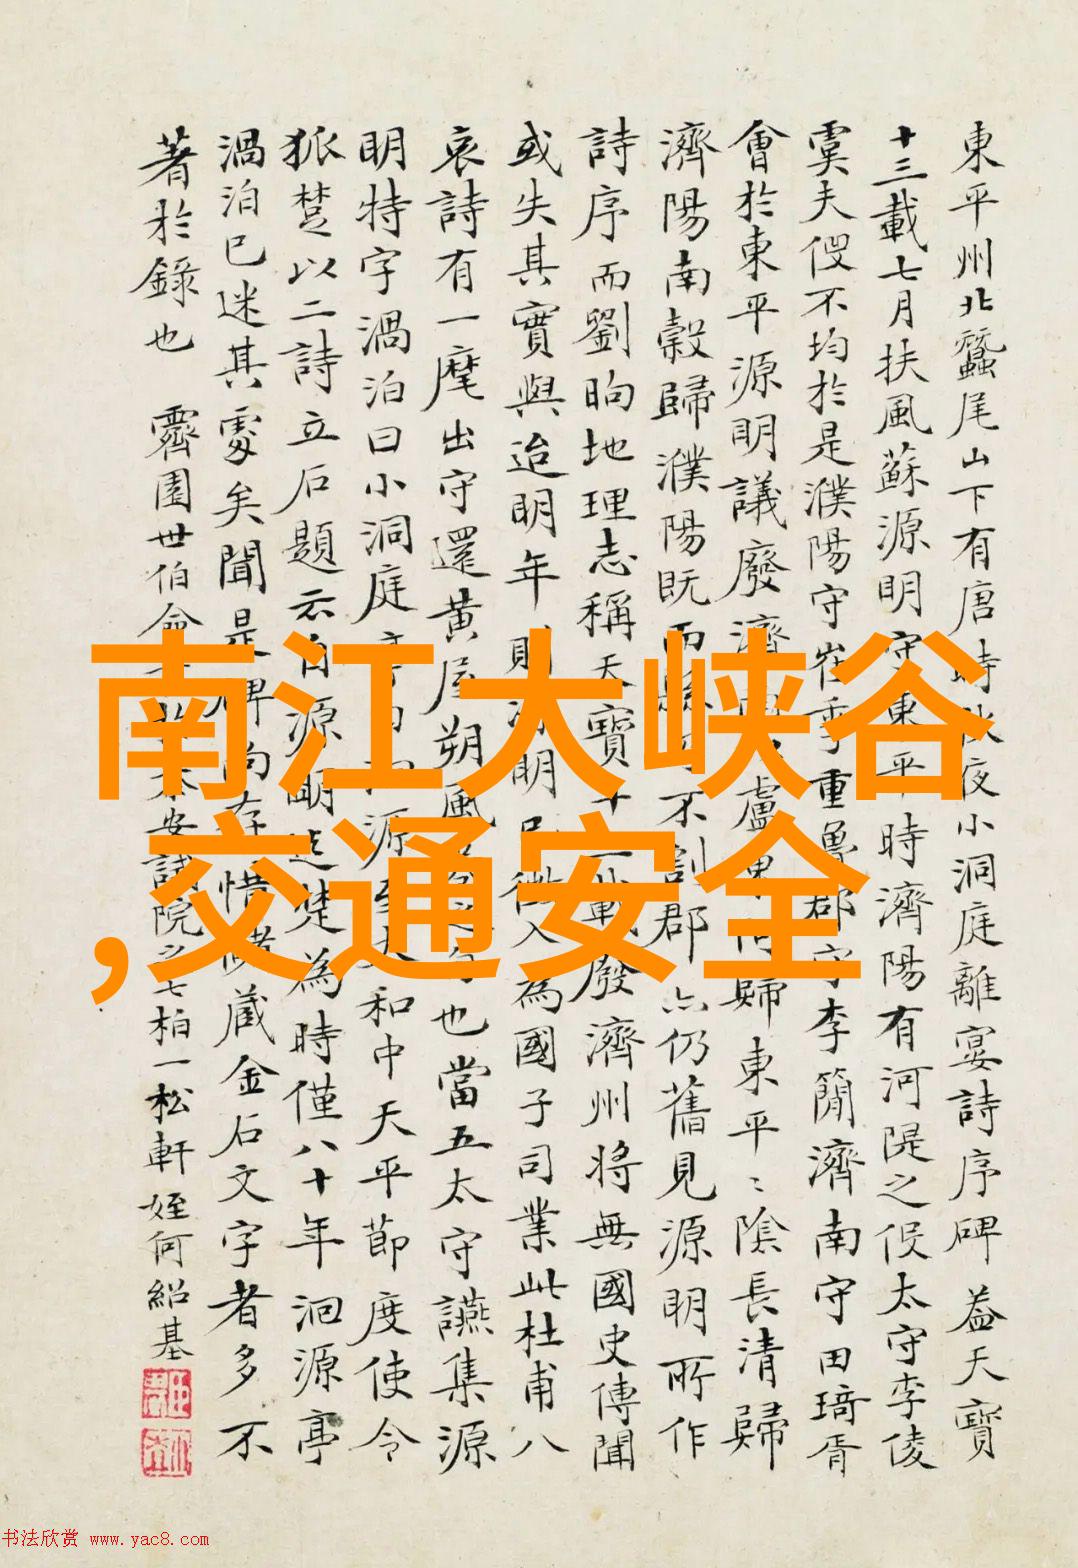 東平州北蠶尾山下有唐時秋夜小洞庭離宴詩序碑 蓋天寶
十三載七月扶風蘇源明守東平時濟陽有河隄之役太守李倰
虞夫役不均於是濮陽守崔季重魯郡守李簡濟南守田琦胥
會於東平源明議廢濟盧東歸東平〻陰長清歸
濟陽南穀歸濮陽既而不割郡亦仍舊見源明所作
詩序而劉昫地理志稱天寶十三載廢濟州將無國史傳聞
或失其實與迨明年則源明已徵入為國子司業此杜甫八
哀詩有一麾出守還黃屋朔風也當五太守讌集源
明特字渦泊曰小洞庭源至太和中天平節度使令
狐楚以二詩立石題云自源明迄楚為時僅八十年洄源亭
渦泊已迷其處矣聞是碑尚存惜儲藏金石文字者多不
著於錄也 霽園世伯命安試院之七柏一松軒 姪何紹基
南江大峡谷
,交通安全
书法欣赏 www.yac8.com